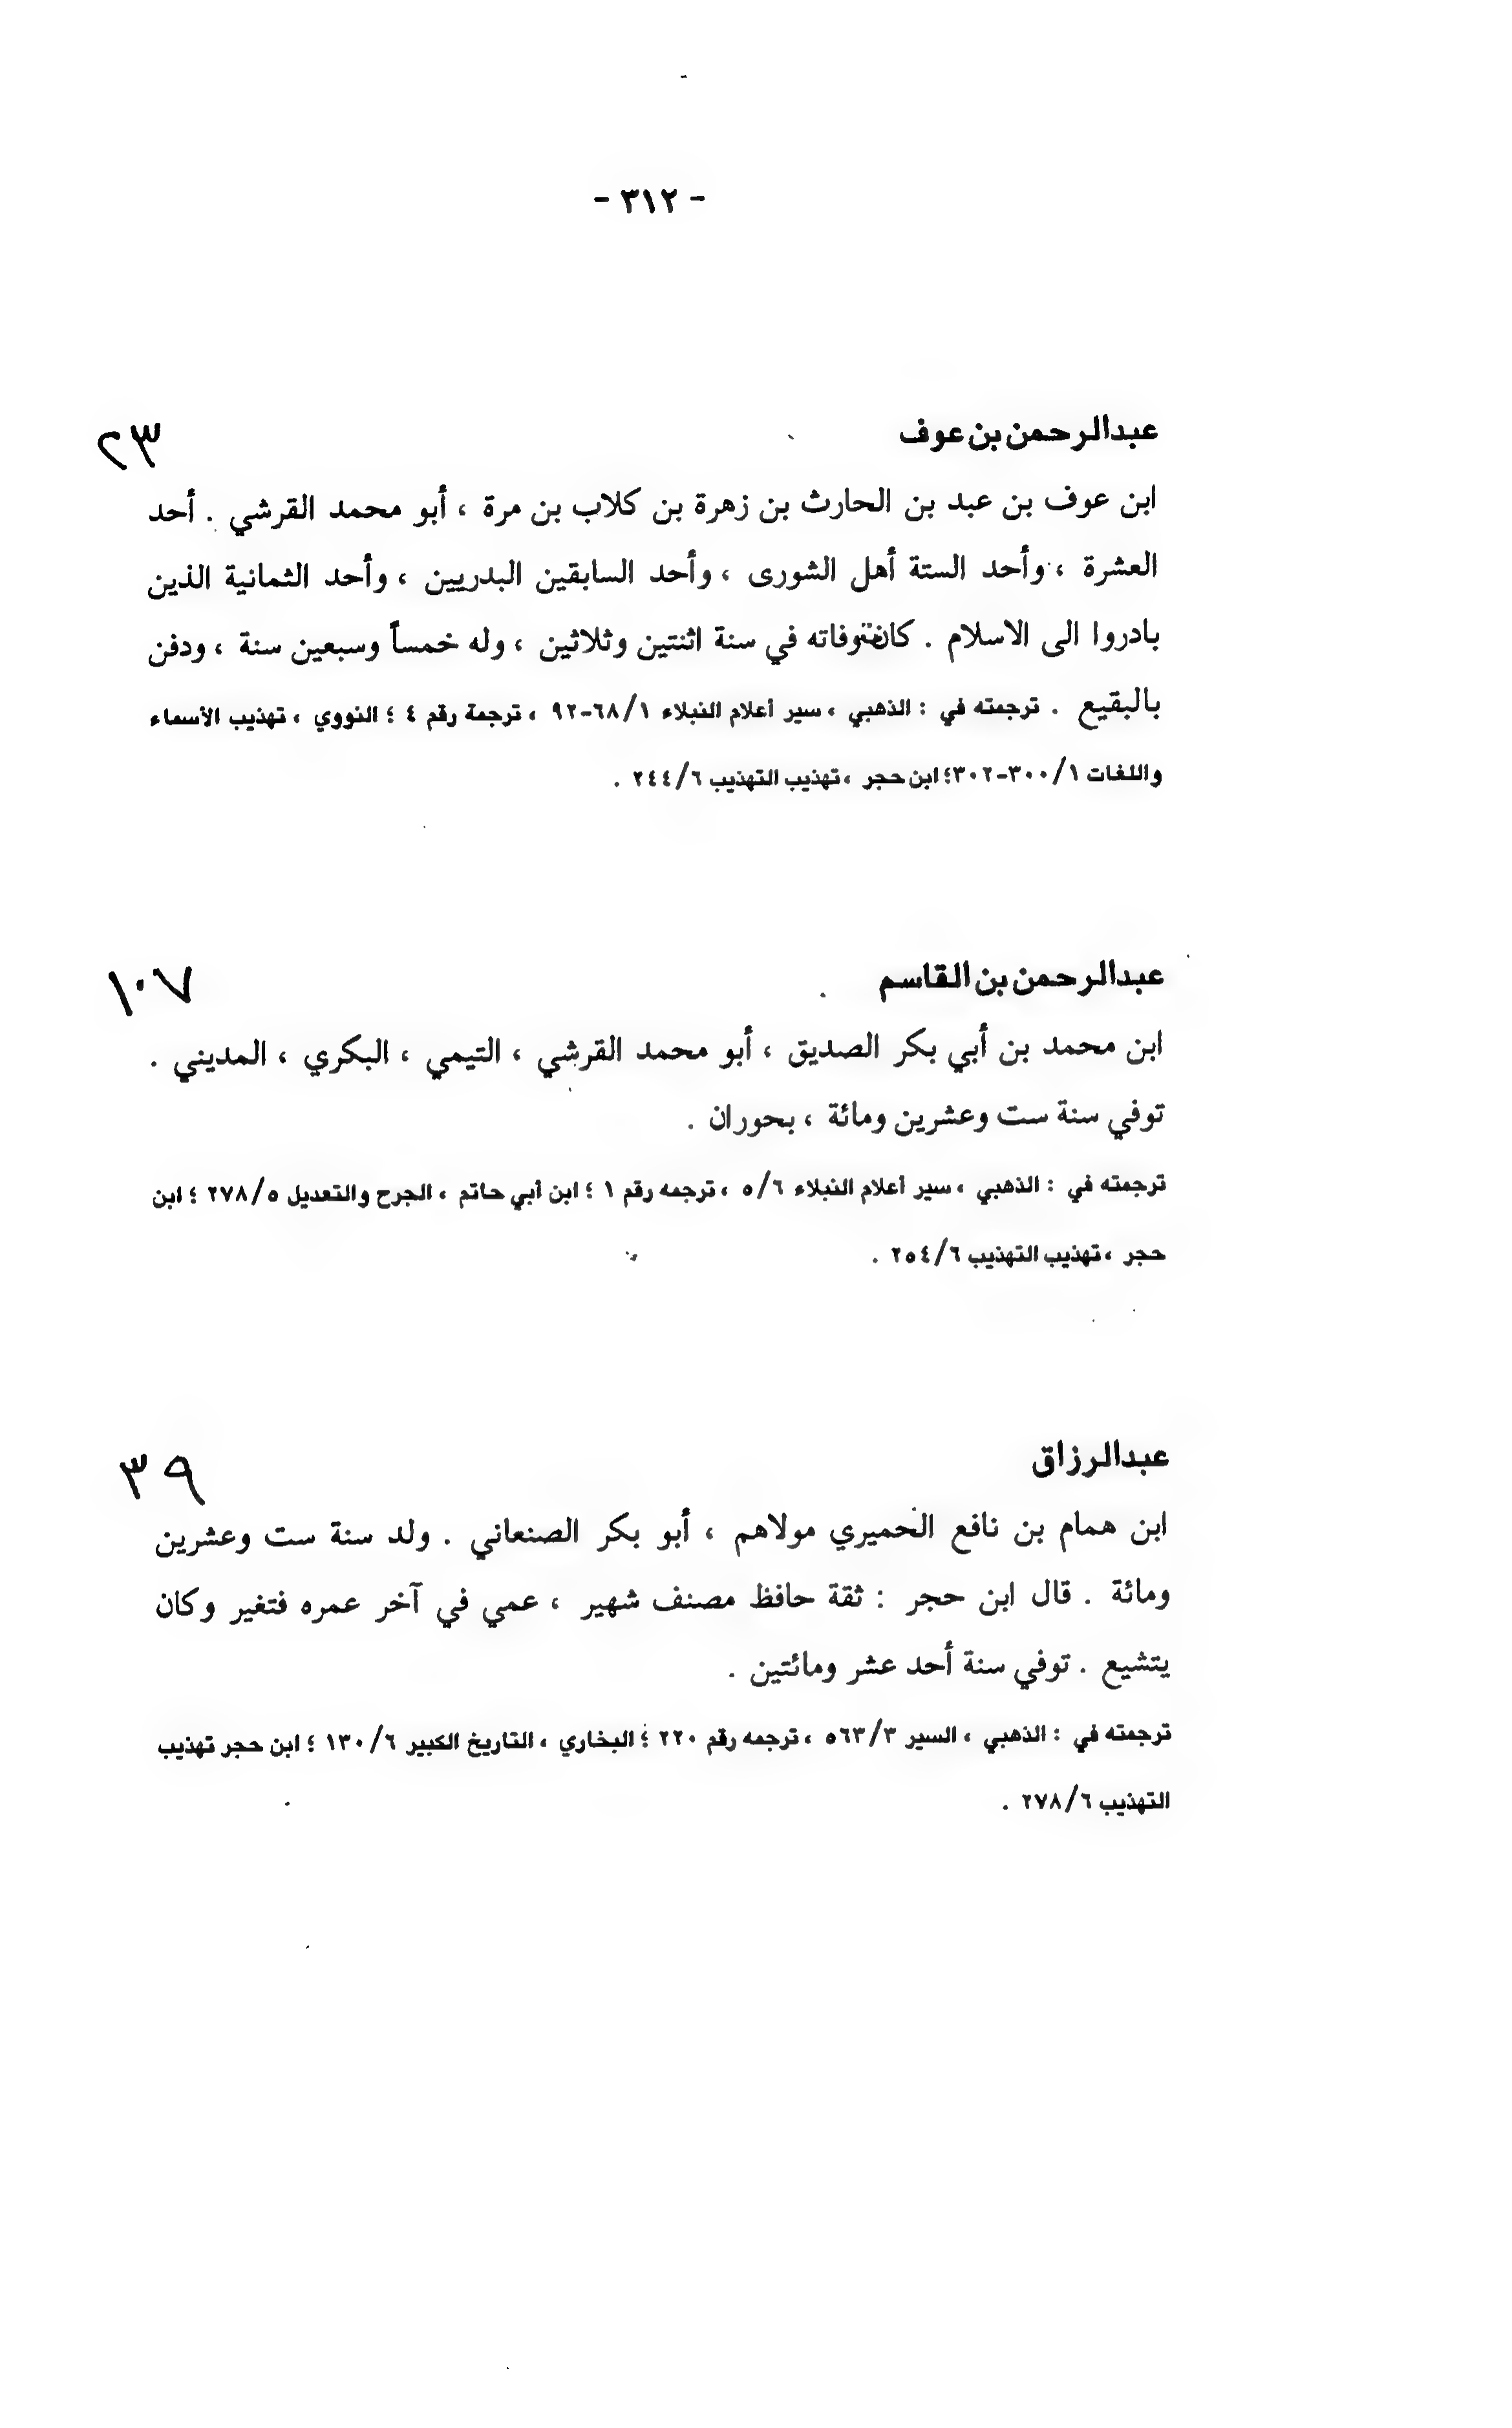 - ٣١٢ -
عبدالرحمن بن عوف ٢٣
ابن عوف بن عبد بن الحارث بن زهرة بن كلاب بن مرة ، أبو محمد القرشي . أحد
العشرة ، وأحد الستة أهل الشورى ، وأحد السابقين البدريين ، وأحد الثمانية الذين
بادروا الى الاسلام . كانتوفاته في سنة اثنتين وثلاثين ، وله خمساً وسبعين سنة ، ودفن
بالبقيع . ترجمته في : الذهبي ، سير أعلام النبلاء ٦٨/١-٩٢ ، ترجمة رقم ٤ ؛ النووي ، تهذيب الأسماء
واللغات ٣٠٠/١-٣٠٢؛ ابن حجر ، تهذيب التهذيب ٢٤٤/٦ .
عبدالرحمن بن القاسم ١٠٧
ابن محمد بن أبي بكر الصديق ، أبو محمد القرشي ، التيمي ، البكري ، المديني .
توفي سنة ست وعشرين ومائة ، بحوران .
ترجمته في : الذهبي ، سير أعلام النبلاء ٥/٦ ، ترجمه رقم ١ ؛ ابن أبي حاتم ، الجرح والتعديل ٢٧٨/٥ ؛ ابن
حجر ، تهذيب التهذيب ٢٥٤/٦ .
عبدالرزاق ٣٩
ابن همام بن نافع الحميري مولاهم ، أبو بكر الصنعاني . ولد سنة ست وعشرين
ومائة . قال ابن حجر : ثقة حافظ مصنف شهير ، عمي في آخر عمره فتغير وكان
يتشيع . توفي سنة أحد عشر ومائتين .
ترجمته في : الذهبي ، السير ٥٦٣/٣ ، ترجمه رقم ٢٢٠ ؛ البخاري ، التاريخ الكبير ١٣٠/٦ ؛ ابن حجر تهذيب
التهذيب ٢٧٨/٦ .